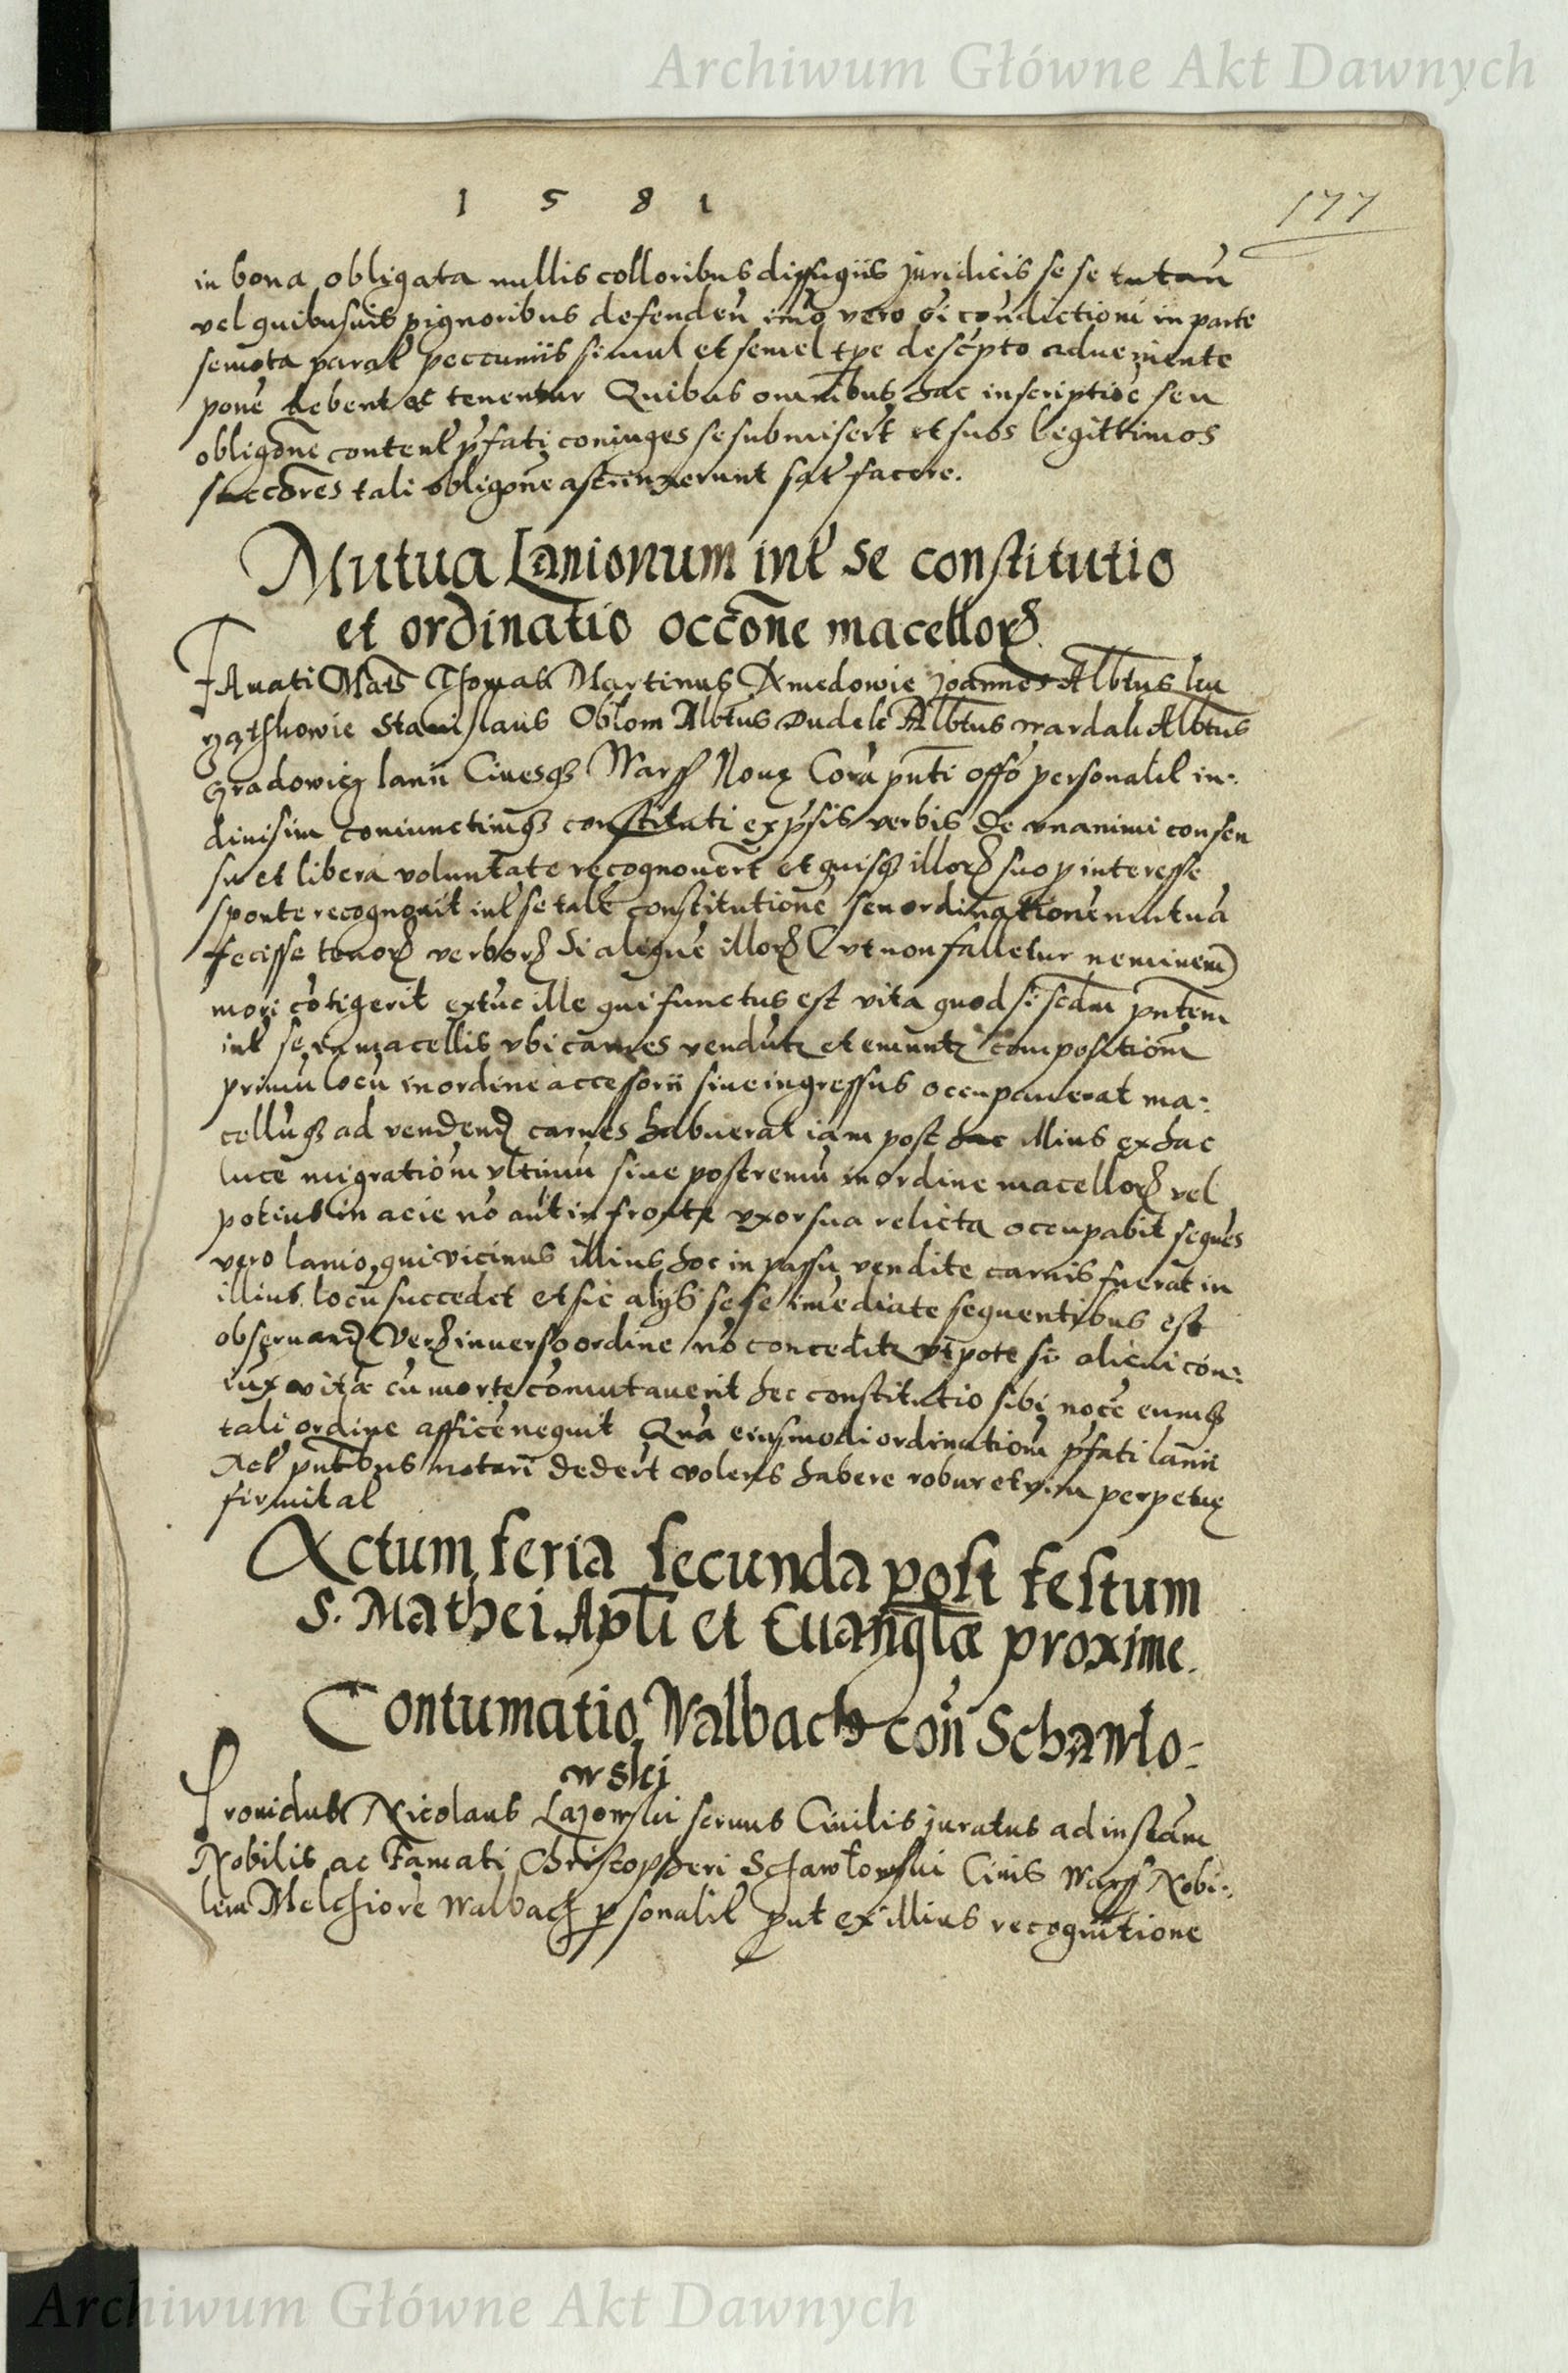 Archiwum Główne Akt Dawnych
1 5 8 1
177
in bona obligata nullis colloribus diffugiis juridicis se se tutau
vel quibusuis pignoribus defendeu imo vero conditioni in parte
semota parat peccuniis simul et semel tpe descpto adueniente
pone debent et tenentur Quibus omnibus hac inscriptioe seu
obligone content pfati coniuges se submisert et suos legittimos
succores tali obligone astrinxerunt sat facere.
Mutua Lanionum int se constitutio
et ordinatio occone macellor
Fauati Thomas Martinus Amedowie Joannes Albtus
Stanislaus Oblom Albtus Dudek Albtus wardak Albtus
gradowicz lanii Ciuesq Warss Noue Cora pnti offo personalit in:
diuisim coniunctimq constituti expsis verbis de vnanimi consen
su et libera voluntate recognouert et quisq illor suo p interesse
sponte recognouit int se tale constitutione seu ordinatione mutua
fecisse tenor verbor Si alique illor (vt non falletur neminem)
mori cotigerit extuc ille qui functus est vita quod si scdm pntem
int se in macellis vbi carnes vendutr et emuntr compositiom
primu locu in ordine accessorii siue ingressus occupauerat ma:
celluq ad vendend carnes habuerat iam post hac illius ex hac
luce migratiom vltimu siue postremu in ordine macellor vel
potius in acie no aut in fronte vxor sua relicta occupabit seques
vero lanio, qui vicinus illius hoc in passu vendite carnis fuerat in
illius locu succedet et sic alijs sese imediate sequentibus est
obseruand Ver inuerso ordine no conceditr vtpote si alicui con:
iux vita cu morte comutauerit hec constitutio sibi noce eumq
tali ordine affice nequit Qua eiusmodi ordinatiom pfati lanii
Act pntibus notari dedert volens habere robur et vim perpetue
firmitat
Actum feria secunda post festum
S. Mathei Apli et Euanglæ proxime.
Contumatio Walbach con Schawlo=
wski
Prouidus Nicolaus Lazowski seruus Ciuilis juratus ad instam
Nobilis ac Famati Christopheri Schawlowski Ciuis Warss Nobi:
lem Melchiore Walbach psonalit put ex illius recognitione
Archiwum Główne Akt Dawnych